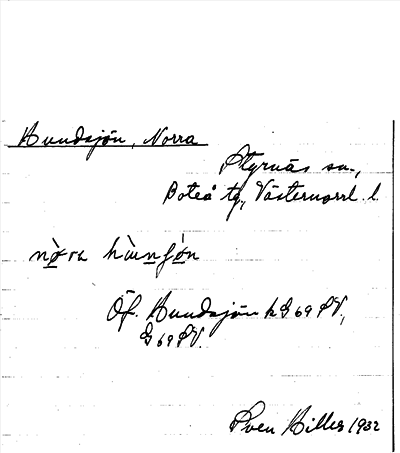 Hundsjön, Norra
Styrnäs sn.,
Boteå tg, Västernorrl. l.
nò̱ra hùṉʃó̱n
Öf. Hundsjön h G 69 SV,
G 69 SV.
Sven Hillis 1932